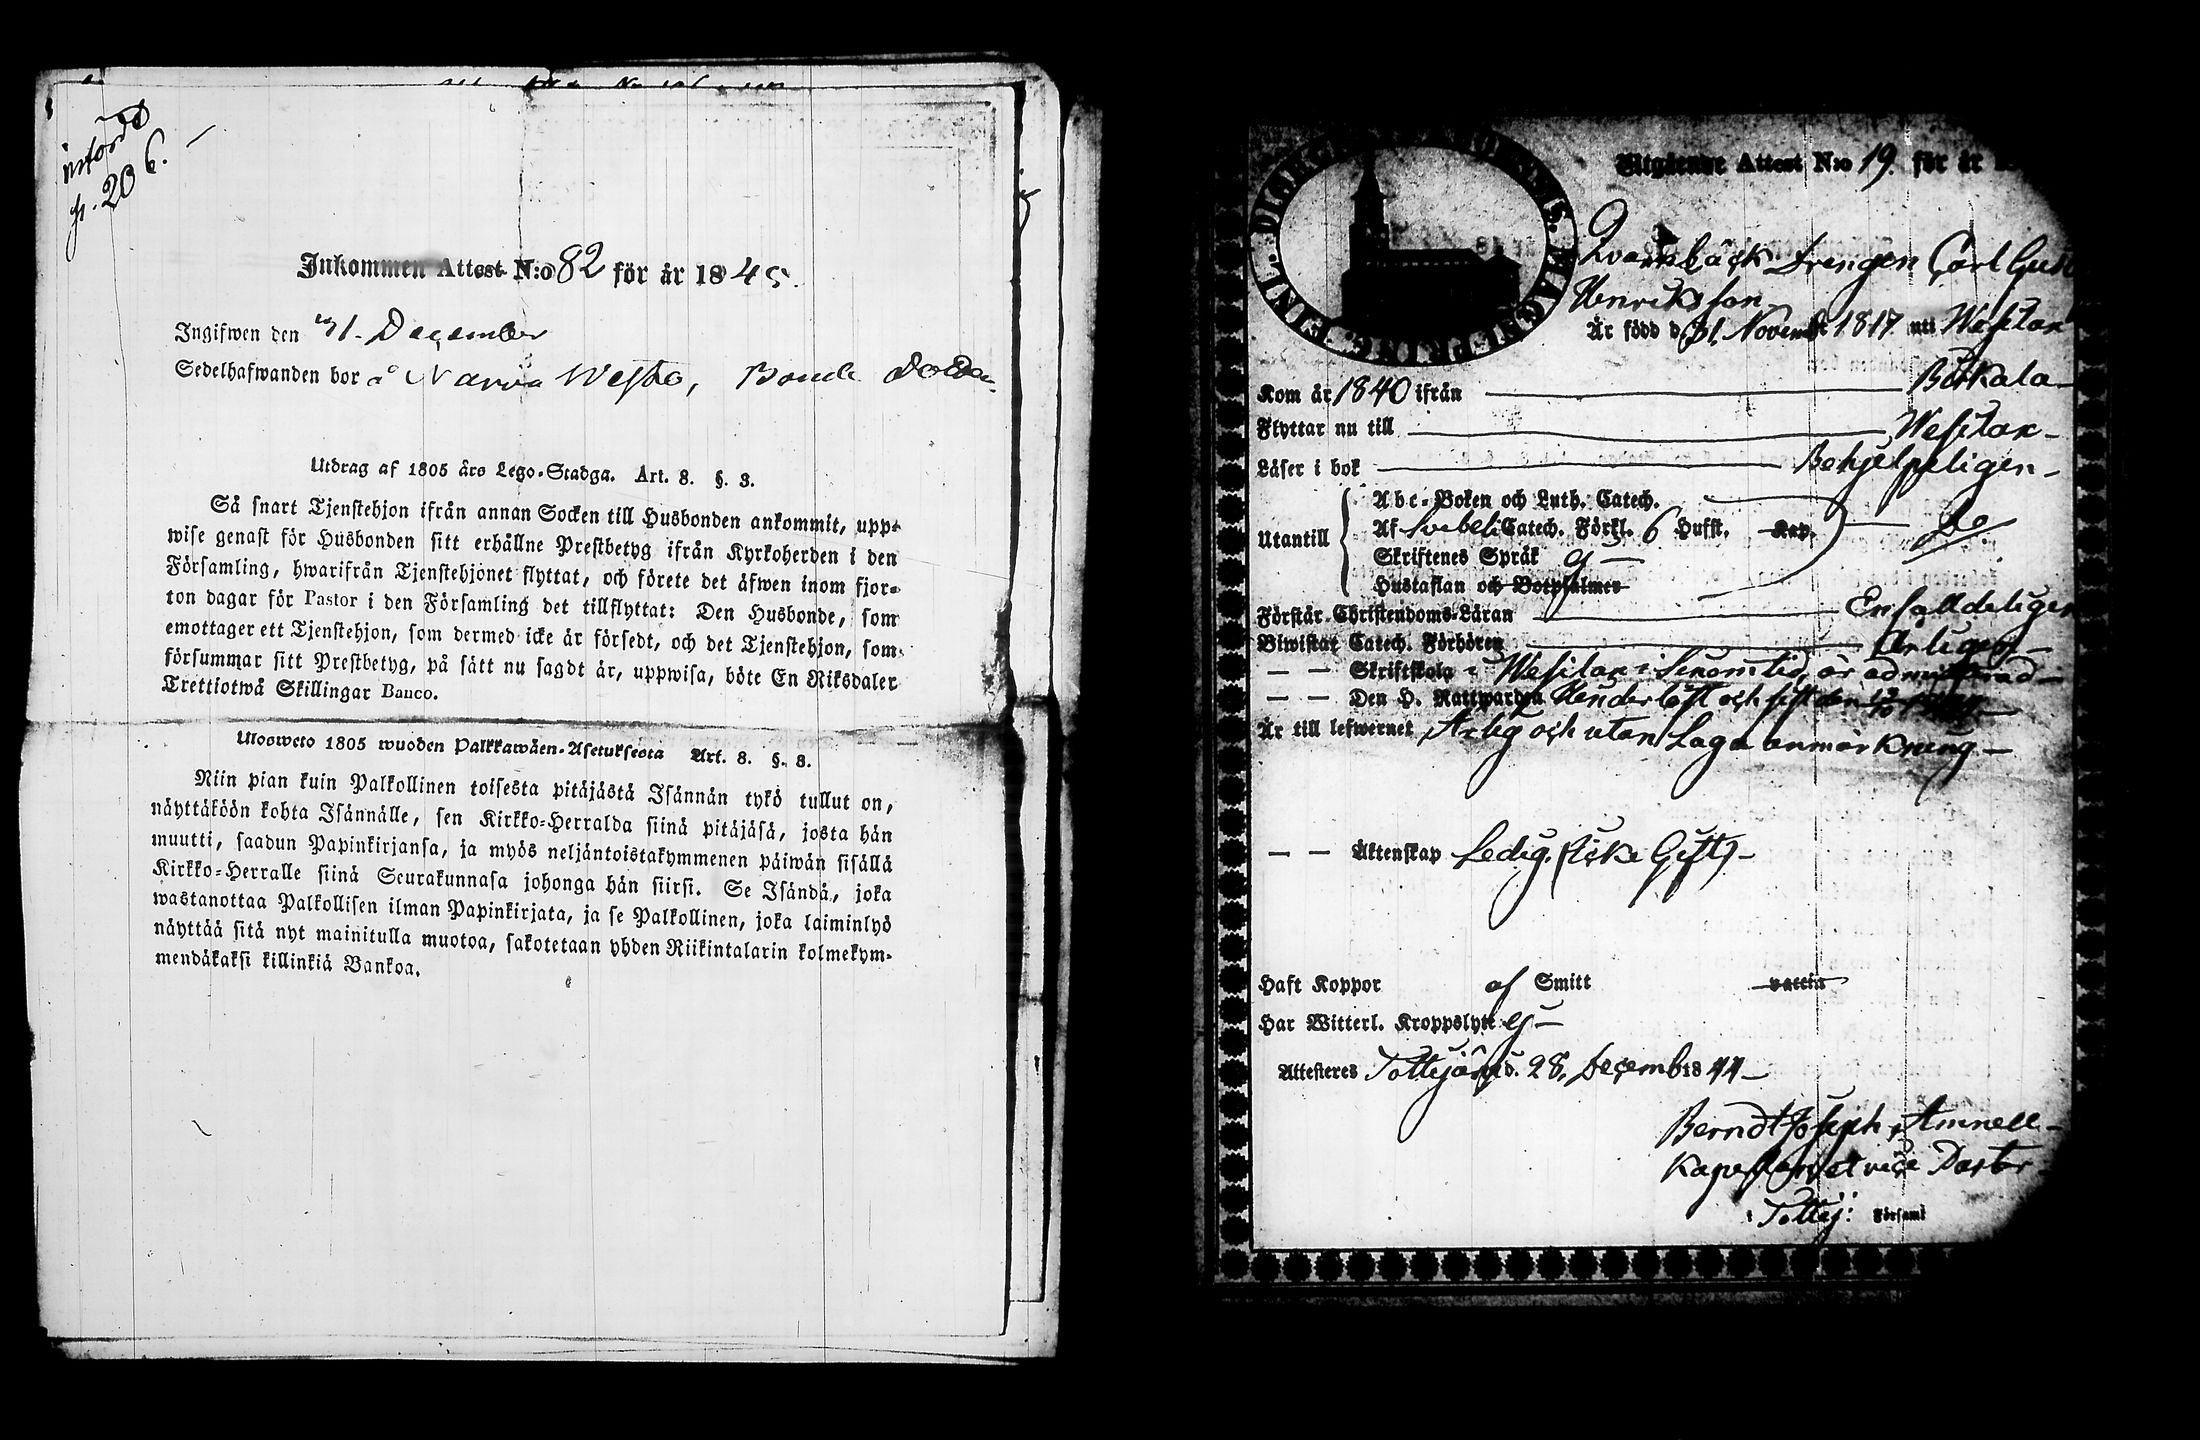 införd
p. 206.
Inkommen Attest N:o 82 för år 1845.
Ingifwen den 31. December
Sedelhafwanden bor å Westo, Bonde
Utdrag af 1805 års Lego-Stadga. Art. 8. §. 3.
Så snart Tjenstehjon ifrån annan Socken till Husbonden ankommit, upp-
wise genast för Husbonden sitt erhållne Prestbetyg ifrån Kyrkoherden i den
Församling, hwarifrån Tjenstehjonet flyttat, och förete det äfwen inom fjor-
ton dagar för Pastor i den Församling det tillflyttat: Den Husbonde, som
emottager ett Tjenstehjon, som dermed icke är försedt, och det Tjenstehjon, som
försummar sitt Prestbetyg, på sätt nu sagdt är, uppwisa, böte En Riksdaler
Trettiotwå Skillingar Banco.
Ulosweto 1805 wuoden Palkkawäen-Asetuksesta Art. 8. §. 3.
Niin pian kuin Palkollinen toisesta pitäjästä Isännän tykö tullut on,
näyttäköön kohta Isännälle, sen Kirkko-Herralda siinä pitäjäsä, josta hän
muutti, saadun Papinkirjansa, ja myös neljäntoistakymmenen päiwän sisällä
Kirkko-Herralle siinä Seurakunnasa johonga hän siirsi. Se Isändä, joka
wastanottaa Palkollisen ilman Papinkirjata, ja se Palkollinen, joka laiminlyö
näyttää sitä nyt mainitulla muotoa, sakotetaan yhden Riikintalarin kolmekym-
mendäkaksi killinkiä Bankoa.
Utgående Attest N:o 19. för år
Qvarnbäck Drengen Carl Gust
Henriksson
Är född d. 31. Novemb 1817 uti Wesilax
Kom år 1840 ifrån Birkala
Flyttar nu till Wesilax
Läser i bok Behjelpeligen
Abc-Boken och Luth. Catech.
Utantill Af Svebeli Catech. Förkl. 6 Hufst. Kap. Do
Skriftenes Språk ej
Hustaflan och Botpsalmer
Förstår Christendoms-Läran Enfaldeligen
Biwistat Catech. Förhören Årligen
— — Skriftskola i Wesilax i sinom tid, är admitterad
— — Den H. Nattwarden och sist den
Är till lefwernet Ärlig och utan Laga anmärkning
— — Äktenskap Ledig. (icke Gift)
Haft Koppor af Smitt vaccin
Har Witterl. Kroppslyte ej
Attesteres Tottijärvi d. 28. Decemb 1844
Berndt Joseph Amnell
Kapellan et vice Pastor
i Tottij: Församl